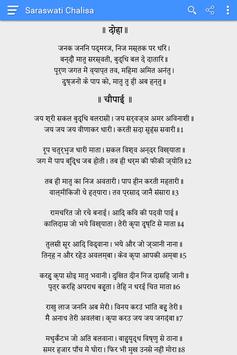 Saraswati Chalisa
॥ दोहा ॥
जनक जननि पद्मरज, निज मस्तक पर धरि।
बन्दौं मातु सरस्वती, बुद्धि बल दे दातारि॥
पूर्ण जगत में व्याप्त तव, महिमा अमित अनंतु।
दुष्जनों के पाप को, मातु तु ही अब हन्तु॥
॥ चौपाई ॥
जय श्री सकल बुद्धि बलरासी। जय सर्वज्ञ अमर अविनाशी॥
जय जय जय वीणाकर धारी। करती सदा सुहंस सवारी॥1
रूप चतुर्भुज धारी माता। सकल विश्व अन्दर विख्याता॥
जग में पाप बुद्धि जब होती। तब ही धर्म की फीकी ज्योति॥2
तब ही मातु का निज अवतारी। पाप हीन करती महतारी॥
वाल्मीकिजी थे हत्यारा। तव प्रसाद जानै संसारा॥3
रामचरित जो रचे बनाई। आदि कवि की पदवी पाई॥
कालिदास जो भये विख्याता। तेरी कृपा दृष्टि से माता॥4
तुलसी सूर आदि विद्वाना। भये और जो ज्ञानी नाना॥
तिन्ह न और रहेउ अवलम्बा। केव कृपा आपकी अम्बा॥5
करहु कृपा सोइ मातु भवानी। दुखित दीन निज दासहि जानी॥
पुत्र करहि अपराध बहूता। तेहि न धरई चित माता॥6
राखु लाज जननि अब मेरी। विनय करउं भांति बहु तेरी॥
मैं अनाथ तेरी अवलंबा। कृपा करउ जय जय जगदंबा॥7
मधुकैटभ जो अति बलवाना। बाहुयुद्ध विष्णु से ठाना॥
समर हजार पाँच में घोरा। फिर भी मुख उनसे नही मोरा॥8